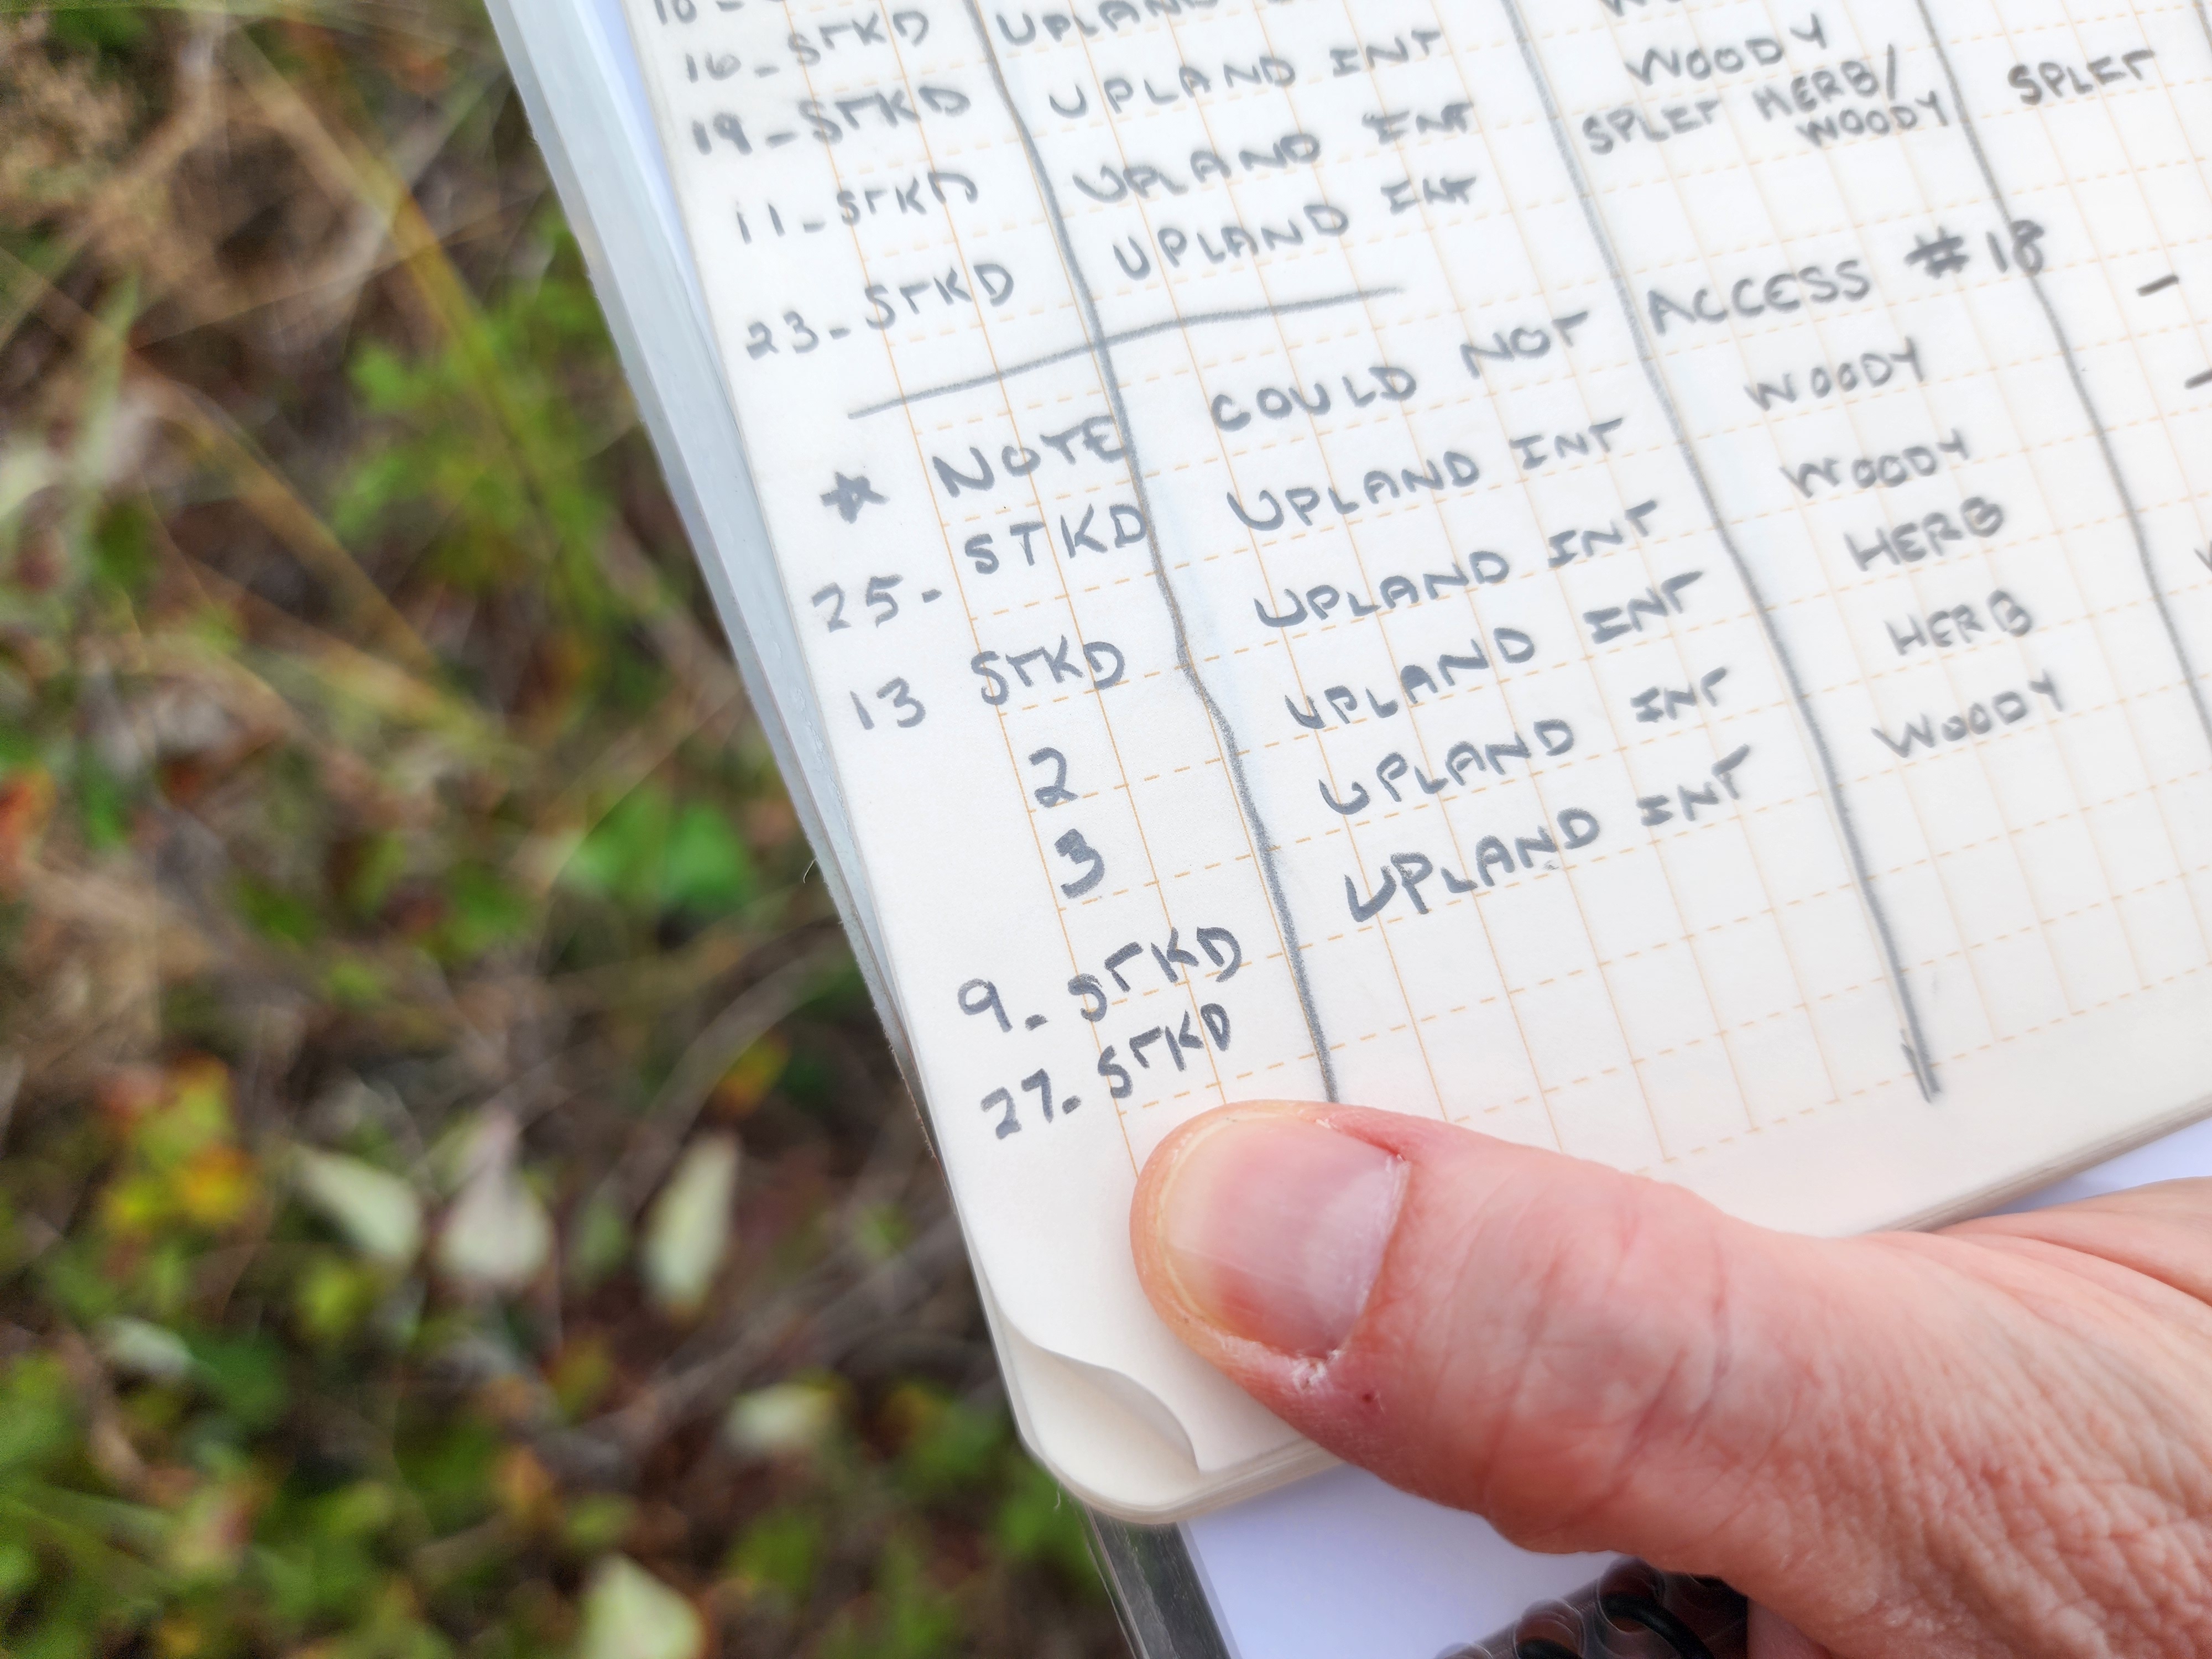 16-STKD UPLAND
19-STKD UPLAND INT
11-STKD UPLAND INT WOODY
23-STKD UPLAND INT SPLIT HERB/ SPLIT
WOODY
☆ NOTE COULD NOT ACCESS #18 -
25- STKD UPLAND INT WOODY
13 STKD UPLAND INT WOODY
2 UPLAND INT HERB
3 UPLAND INT HERB
9- STKD UPLAND INT WOODY
27- STKD